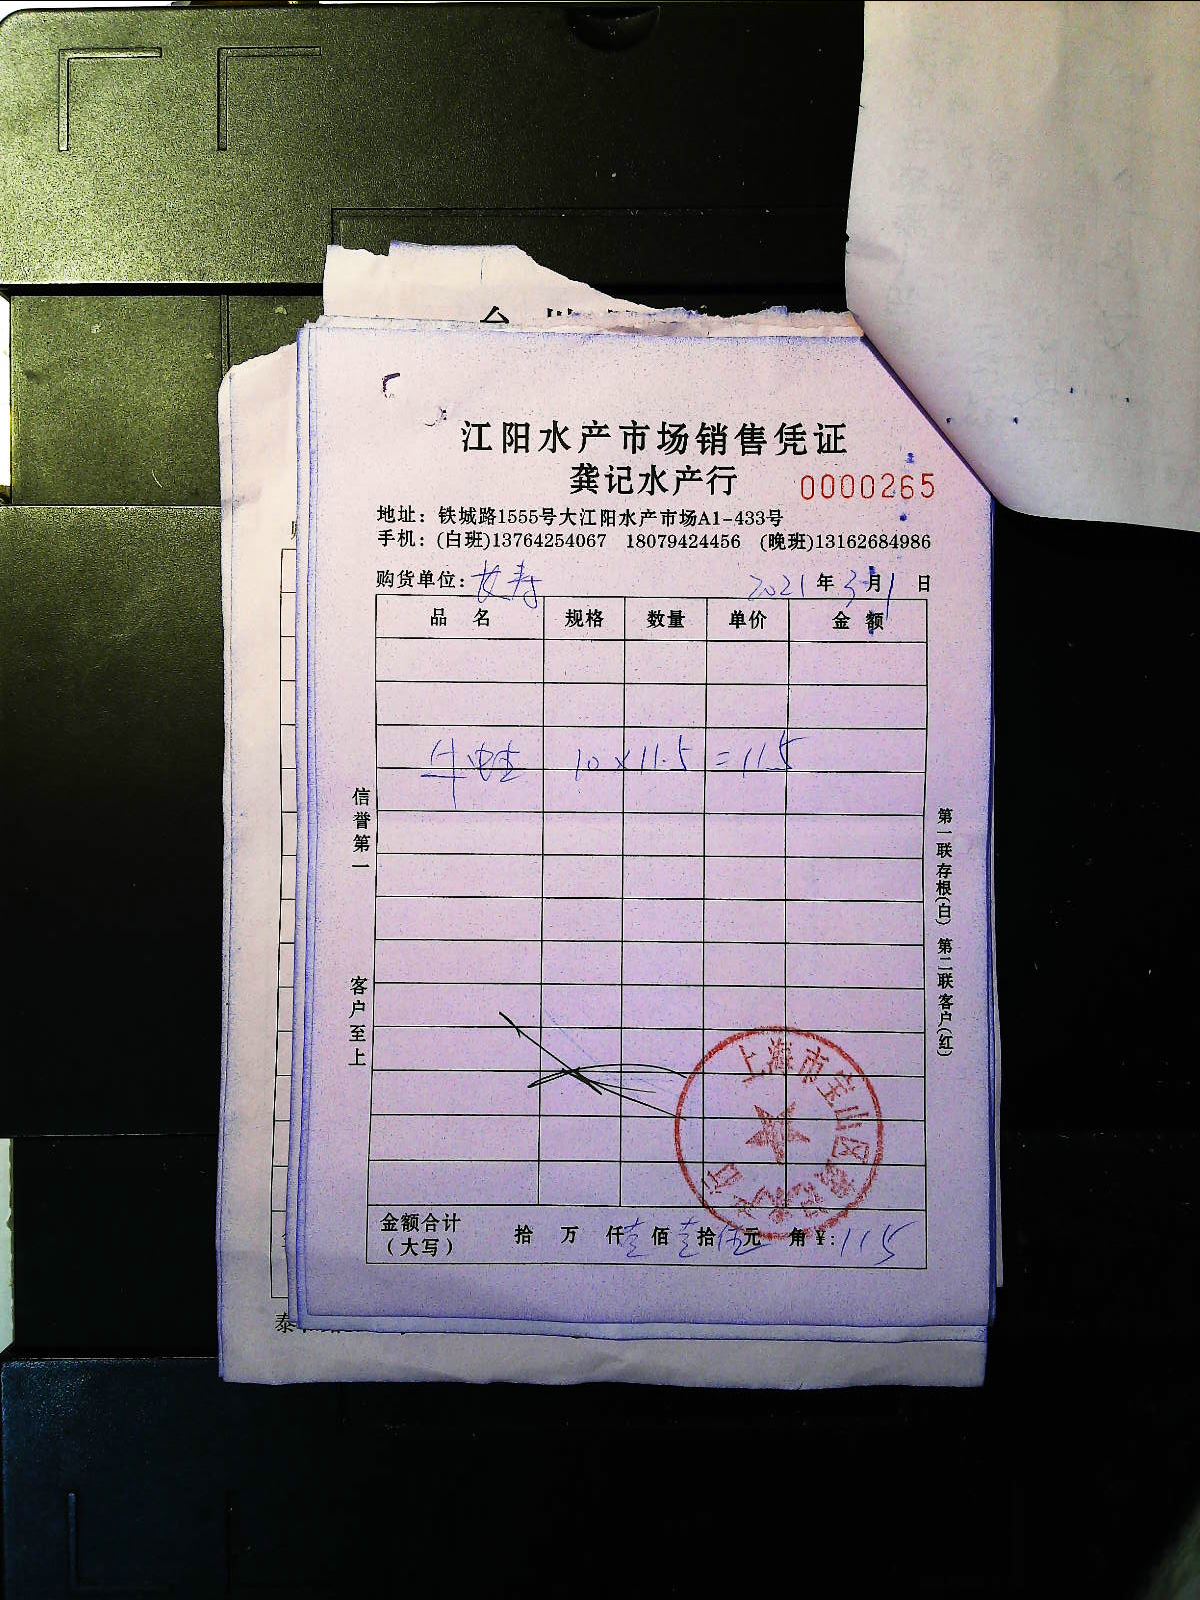 江阳水产市场销售凭证
龚记水产行
0000265
地址：铁城路1555号大江阳水产市场A1-433号
手机：(白班)13764254067 18079424456 (晚班)13162684986
购货单位：
2021年3月1日
品名 规格 数量 单价 金额
10×11.5=115
信誉第一
客户至上
第一联存根(白) 第二联客户(红)
上海市宝山区龚记水产行
金额合计 拾 万 仟壹佰壹拾伍元 角¥:115
（大写）
泰